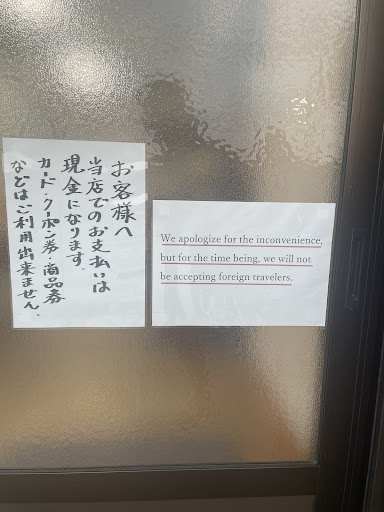 お客様へ
当店でのお支払いは
現金になります。
カード・クーポン券・商品券
などはご利用出来ません。
We apologize for the inconvenience,
but for the time being, we will not
be accepting foreign travelers.